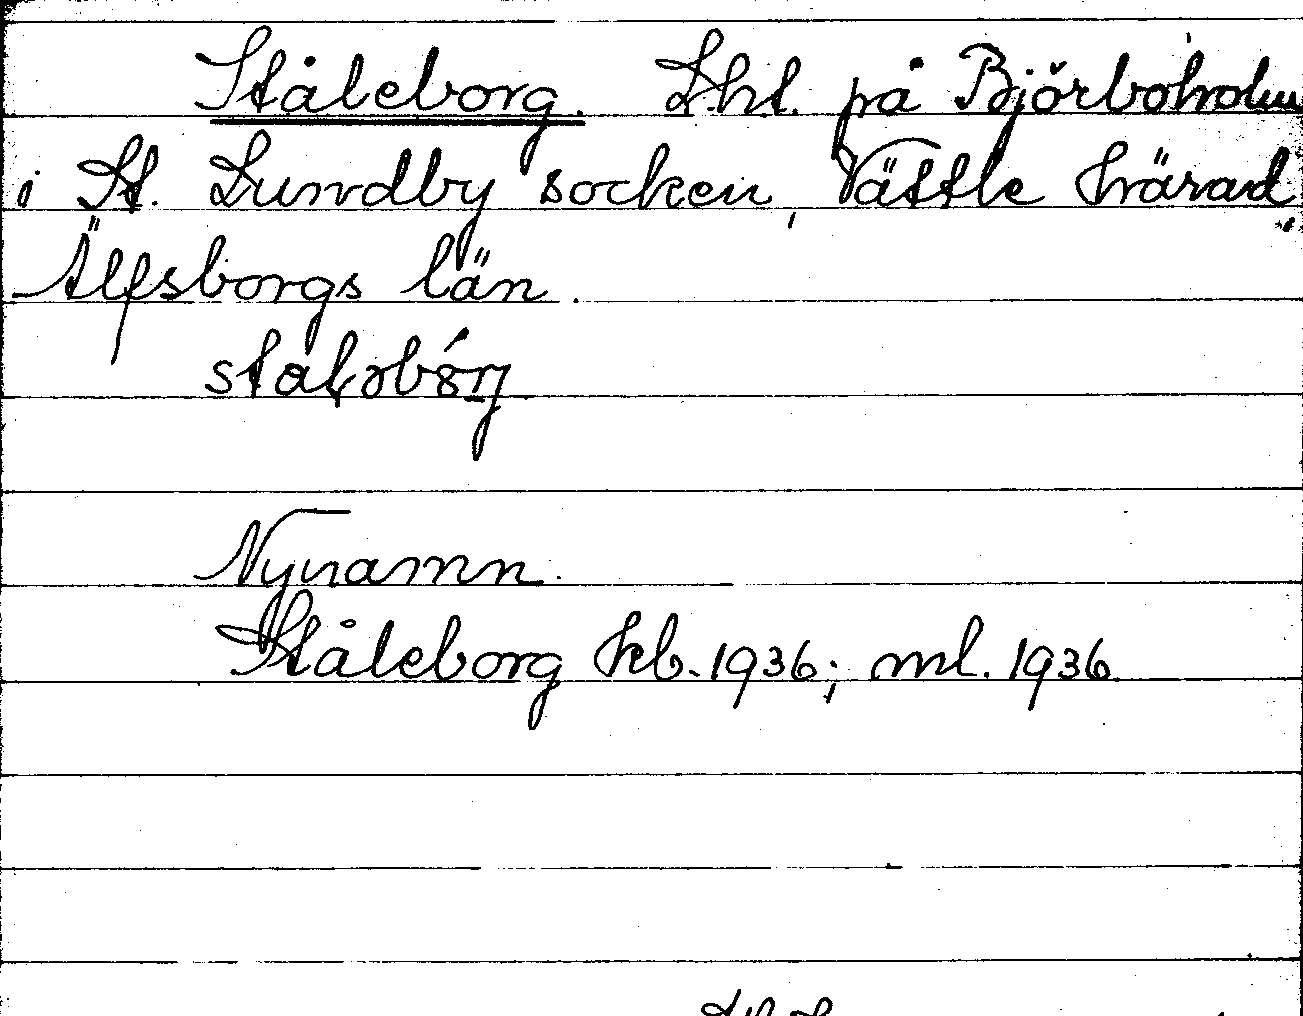 Ståleborg. Lht. på Björboholm
i St. Lundby socken, Vättle härad,
Älfsborgs län.
Nynamn.
Ståleborg hb. 1936; ml. 1936.